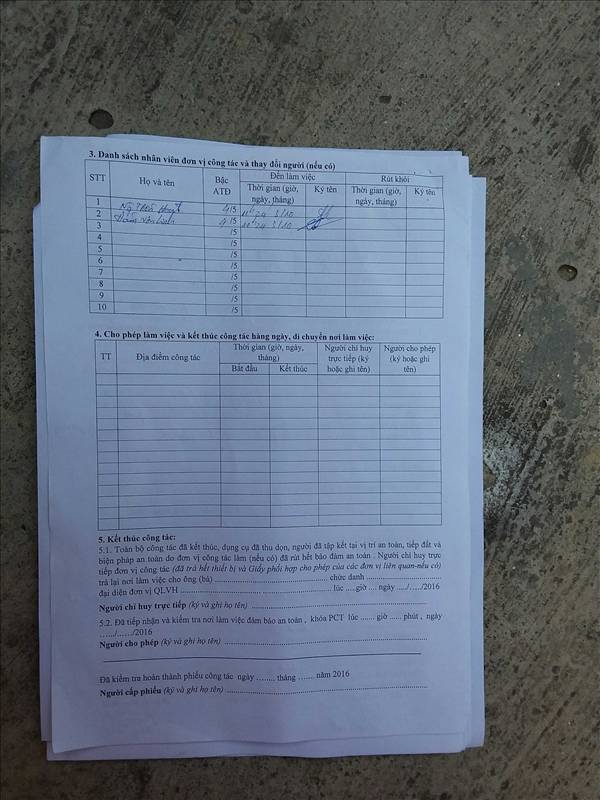 3. Danh sách nhân viên đơn vị công tác và thay đổi người (nếu có)
STT Họ và tên Bậc ATĐ Đến làm việc Rút khỏi
Thời gian (giờ, ngày, tháng) Ký tên Thời gian (giờ, ngày, tháng) Ký tên
1 4/5
2 4/5
3 /5
4 /5
5 /5
6 /5
7 /5
8 /5
9 /5
10 /5
4. Cho phép làm việc và kết thúc công tác hàng ngày, di chuyển nơi làm việc:
TT Địa điểm công tác Thời gian (giờ, ngày, tháng) Người chỉ huy trực tiếp (ký hoặc ghi tên) Người cho phép (ký hoặc ghi tên)
Bắt đầu Kết thúc
5. Kết thúc công tác:
5.1. Toàn bộ công tác đã kết thúc, dụng cụ đã thu dọn, người đã tập kết tại vị trí an toàn, tiếp đất và
biện pháp an toàn do đơn vị công tác làm (nếu có) đã rút hết bảo đảm an toàn . Người chỉ huy trực
tiếp đơn vị công tác (đã trả hết thiết bị và Giấy phối hợp cho phép của các đơn vị liên quan-nếu có)
trả lại nơi làm việc cho ông (bà) ........................................ chức danh ..........................
đại diện đơn vị QLVH .................................................. lúc .....giờ .... ngày ...../...../2016
Người chỉ huy trực tiếp (ký và ghi họ tên) ............................................................
5.2. Đã tiếp nhận và kiểm tra nơi làm việc đảm bảo an toàn , khóa PCT lúc ....... giờ ..... phút , ngày
....../......./2016
Người cho phép (ký và ghi họ tên) ......................................................................
Đã kiểm tra hoàn thành phiếu công tác ngày ........ tháng ...... năm 2016
Người cấp phiếu (ký và ghi họ tên) .....................................................................